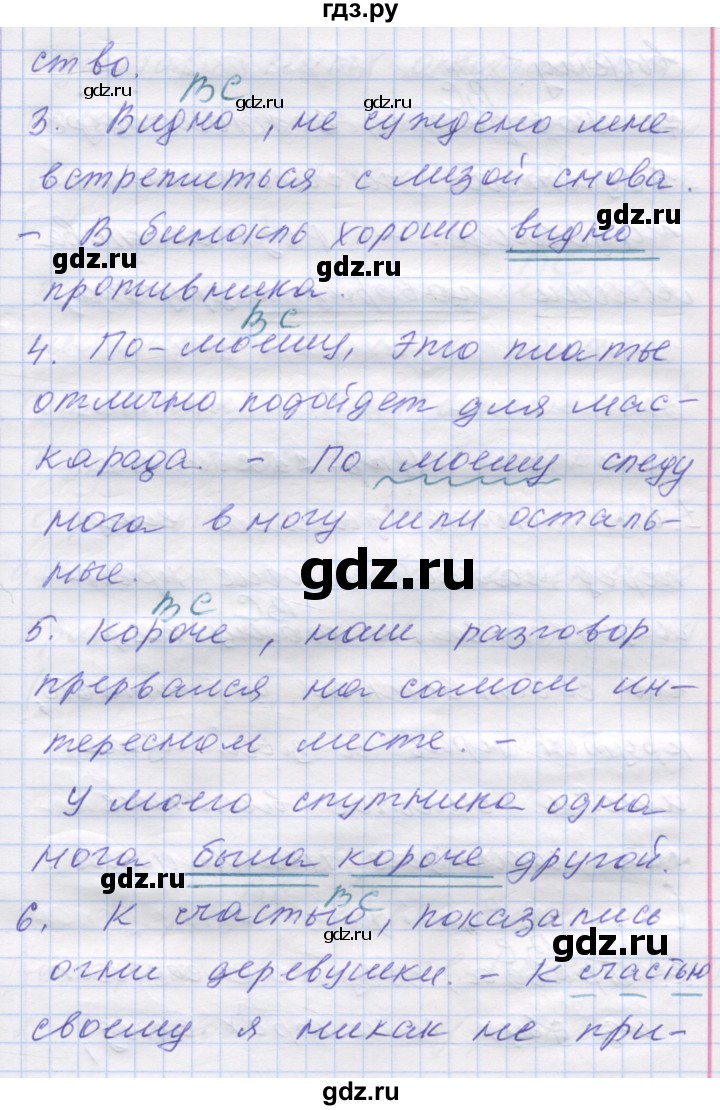 гдз.ру
ство.
gdz.ru
ВС
gdz.ru
gdz.ru
3. Видно, не суждено мне
встретиться с Лизой снова.
gdz.ru
– В бинокль хорошо видно
gdz.ru
gdz.ru
противника.
ВС
4. По-моему, это платье
отлично подойдет для мас-
карада. – По моему следу
нога в ногу шли осталь-
ные.
gdz.ru
ВС
5. Короче, наш разговор
прервался на самом ин-
тересном месте. –
У моего спутника одна
нога была короче другой.
gdz.ru
ВС
6. К счастью, показались
gdz.ru
gdz.ru
огни деревушки. – К счастью
своему я никак не при-
gdz.ru
gdz.ru